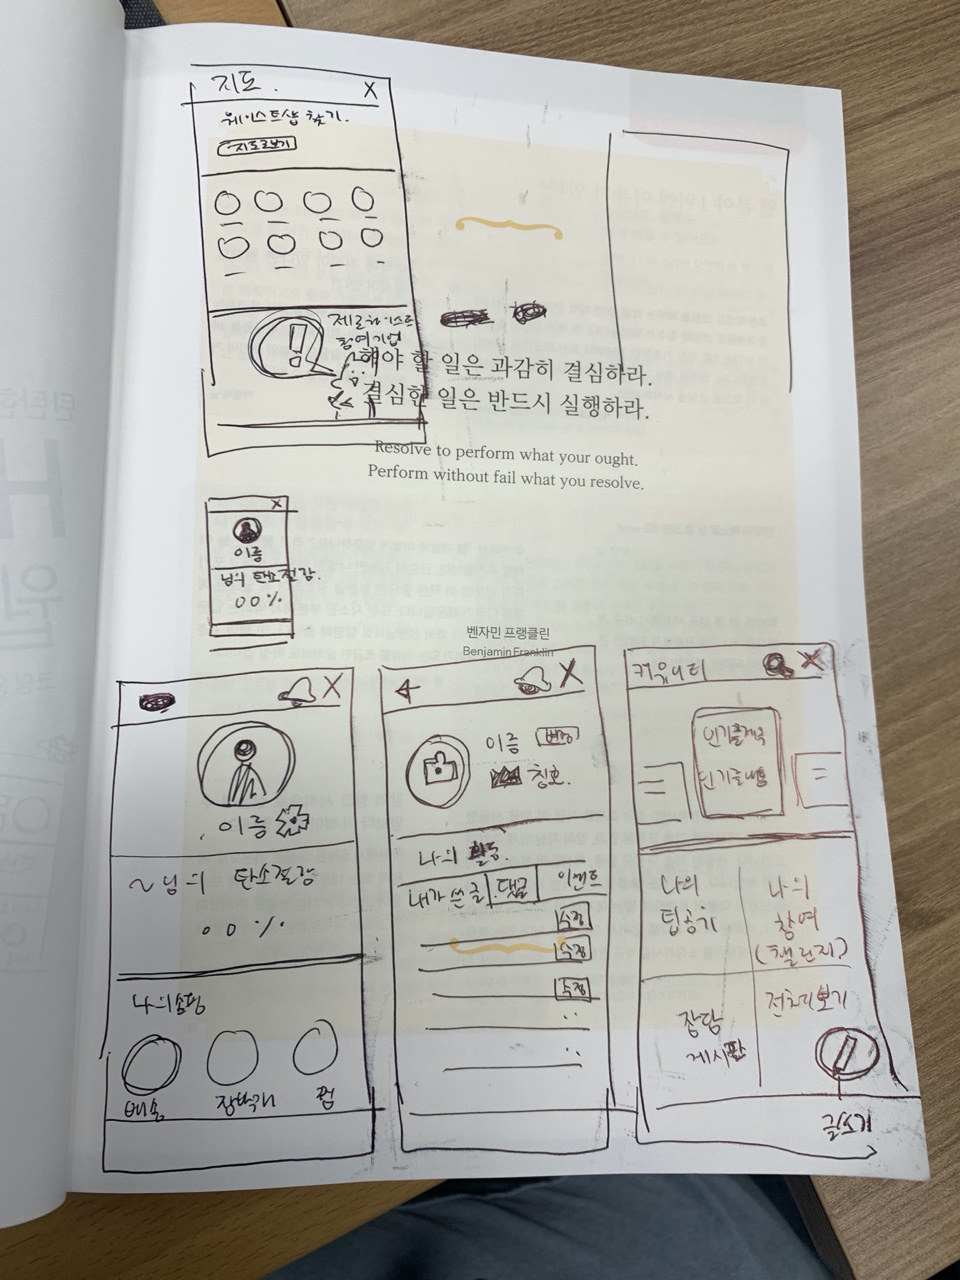 지도.
X
웨이스트샵 찾기.
지도로보기
제로웨이스트
참여기업
해야 할 일은 과감히 결심하라.
결심한 일은 반드시 실행하라.
Resolve to perform what your ought.
Perform without fail what you resolve.
X
이름
님의 탄소절감.
00%
벤자민 프랭클린
Benjamin Franklin
X
이름
~님의 탄소절감
00%
나의쇼핑
배송
장바구니
찜
X
이름
변경
칭호.
나의 활동.
내가 쓴 글
댓글
이벤트
수정
수정
수정
커뮤니티
X
인기글제목
인기글내용
나의
팁공기
나의
참여
(챌린지)
잡담
게시판
전체보기
글쓰기